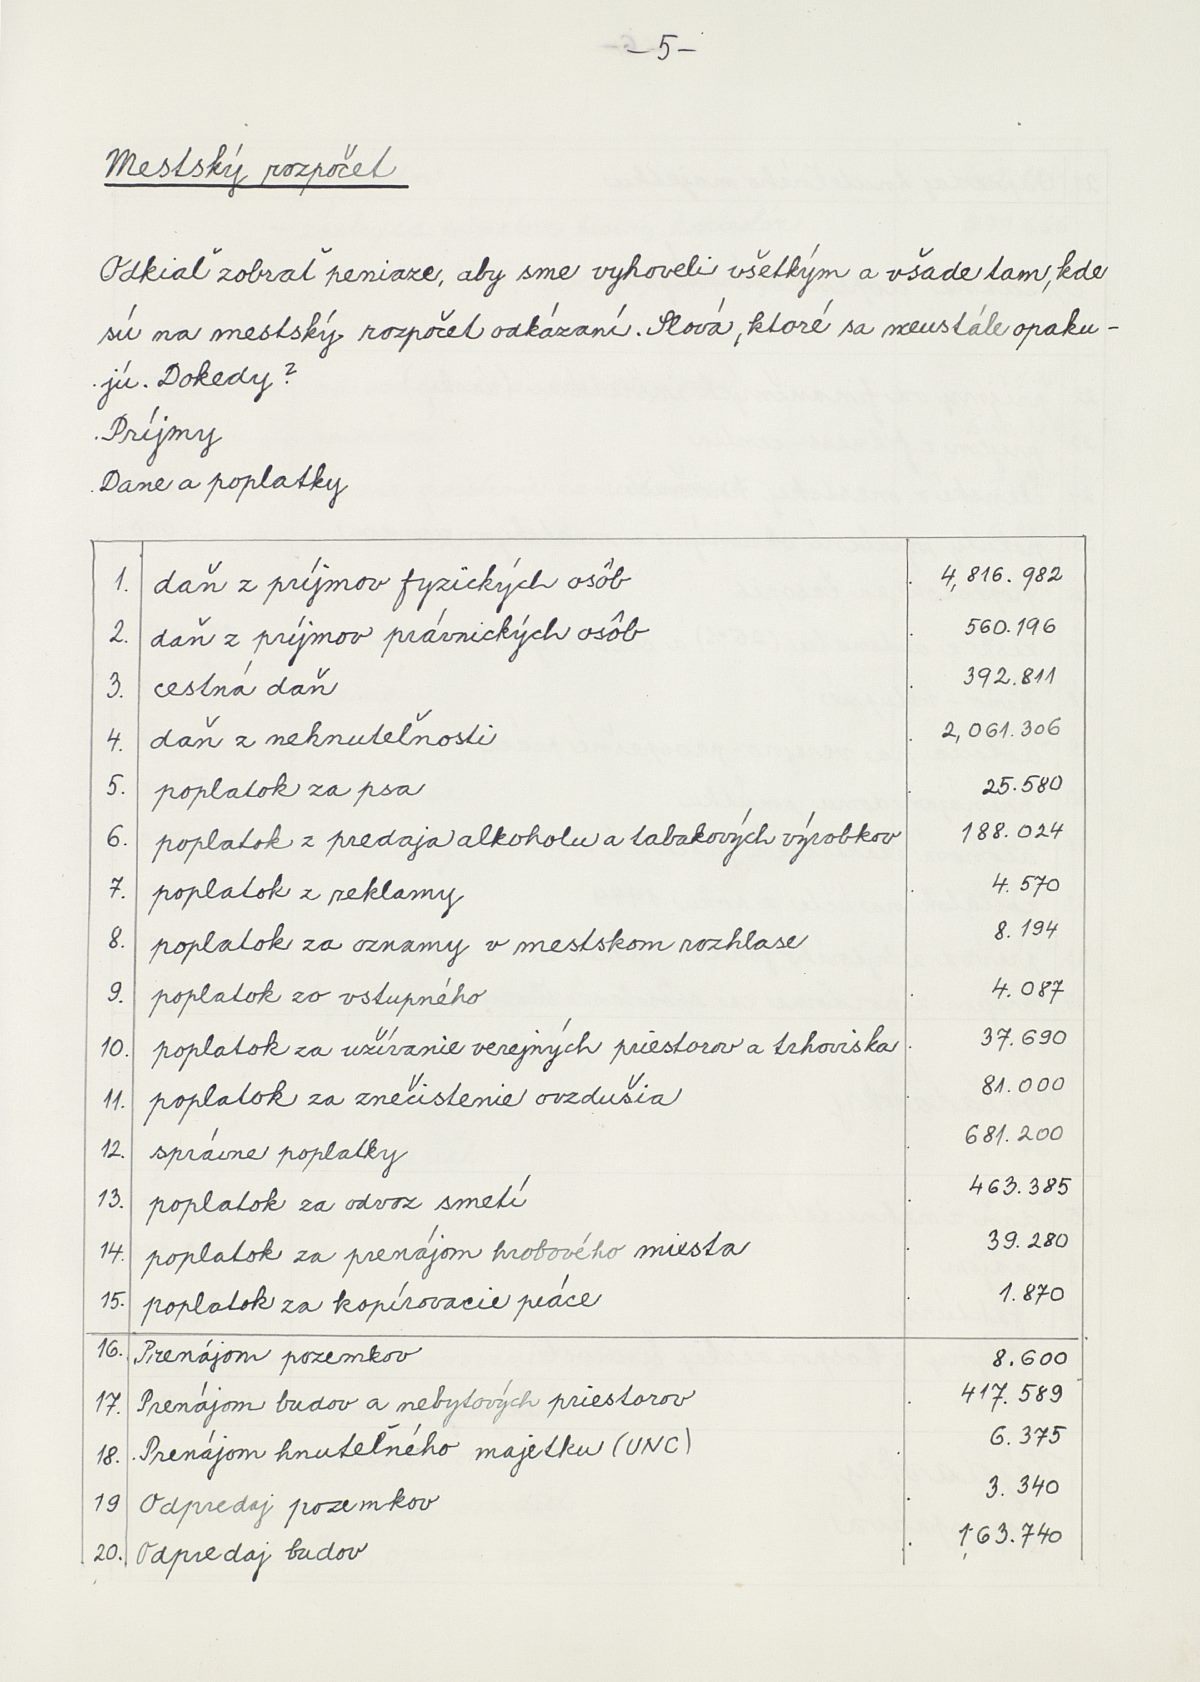 - 5 -
Mestský rozpočet
Odkiaľ zobrať peniaze, aby sme vyhoveli všetkým a všade tam, kde
sú na mestský rozpočet odkázaní. Slová, ktoré sa neustále opaku-
jú. Dokedy?
Príjmy
Dane a poplatky
1. daň z príjmov fyzických osôb 4,816.982
2. daň z príjmov právnických osôb 560.196
3. cestná daň 392.811
4. daň z nehnuteľnosti 2,061.306
5. poplatok za psa 25.580
6. poplatok z predaja alkoholu a tabakových výrobkov 188.024
7. poplatok z reklamy 4.570
8. poplatok za oznamy v mestskom rozhlase 8.194
9. poplatok zo vstupného 4.087
10. poplatok za užívanie verejných priestorov a trhoviska 37.690
11. poplatok za znečistenie ovzdušia 81.000
12. správne poplatky 681.200
13. poplatok za odvoz smetí 463.385
14. poplatok za prenájom hrobového miesta 39.280
15. poplatok za kopírovacie práce 1.870
16. Prenájom pozemkov 8.600
17. Prenájom budov a nebytových priestorov 417.589
18. Prenájom hnuteľného majetku (UNC) 6.375
19 Odpredaj pozemkov 3.340
20. Odpredaj budov 163.740